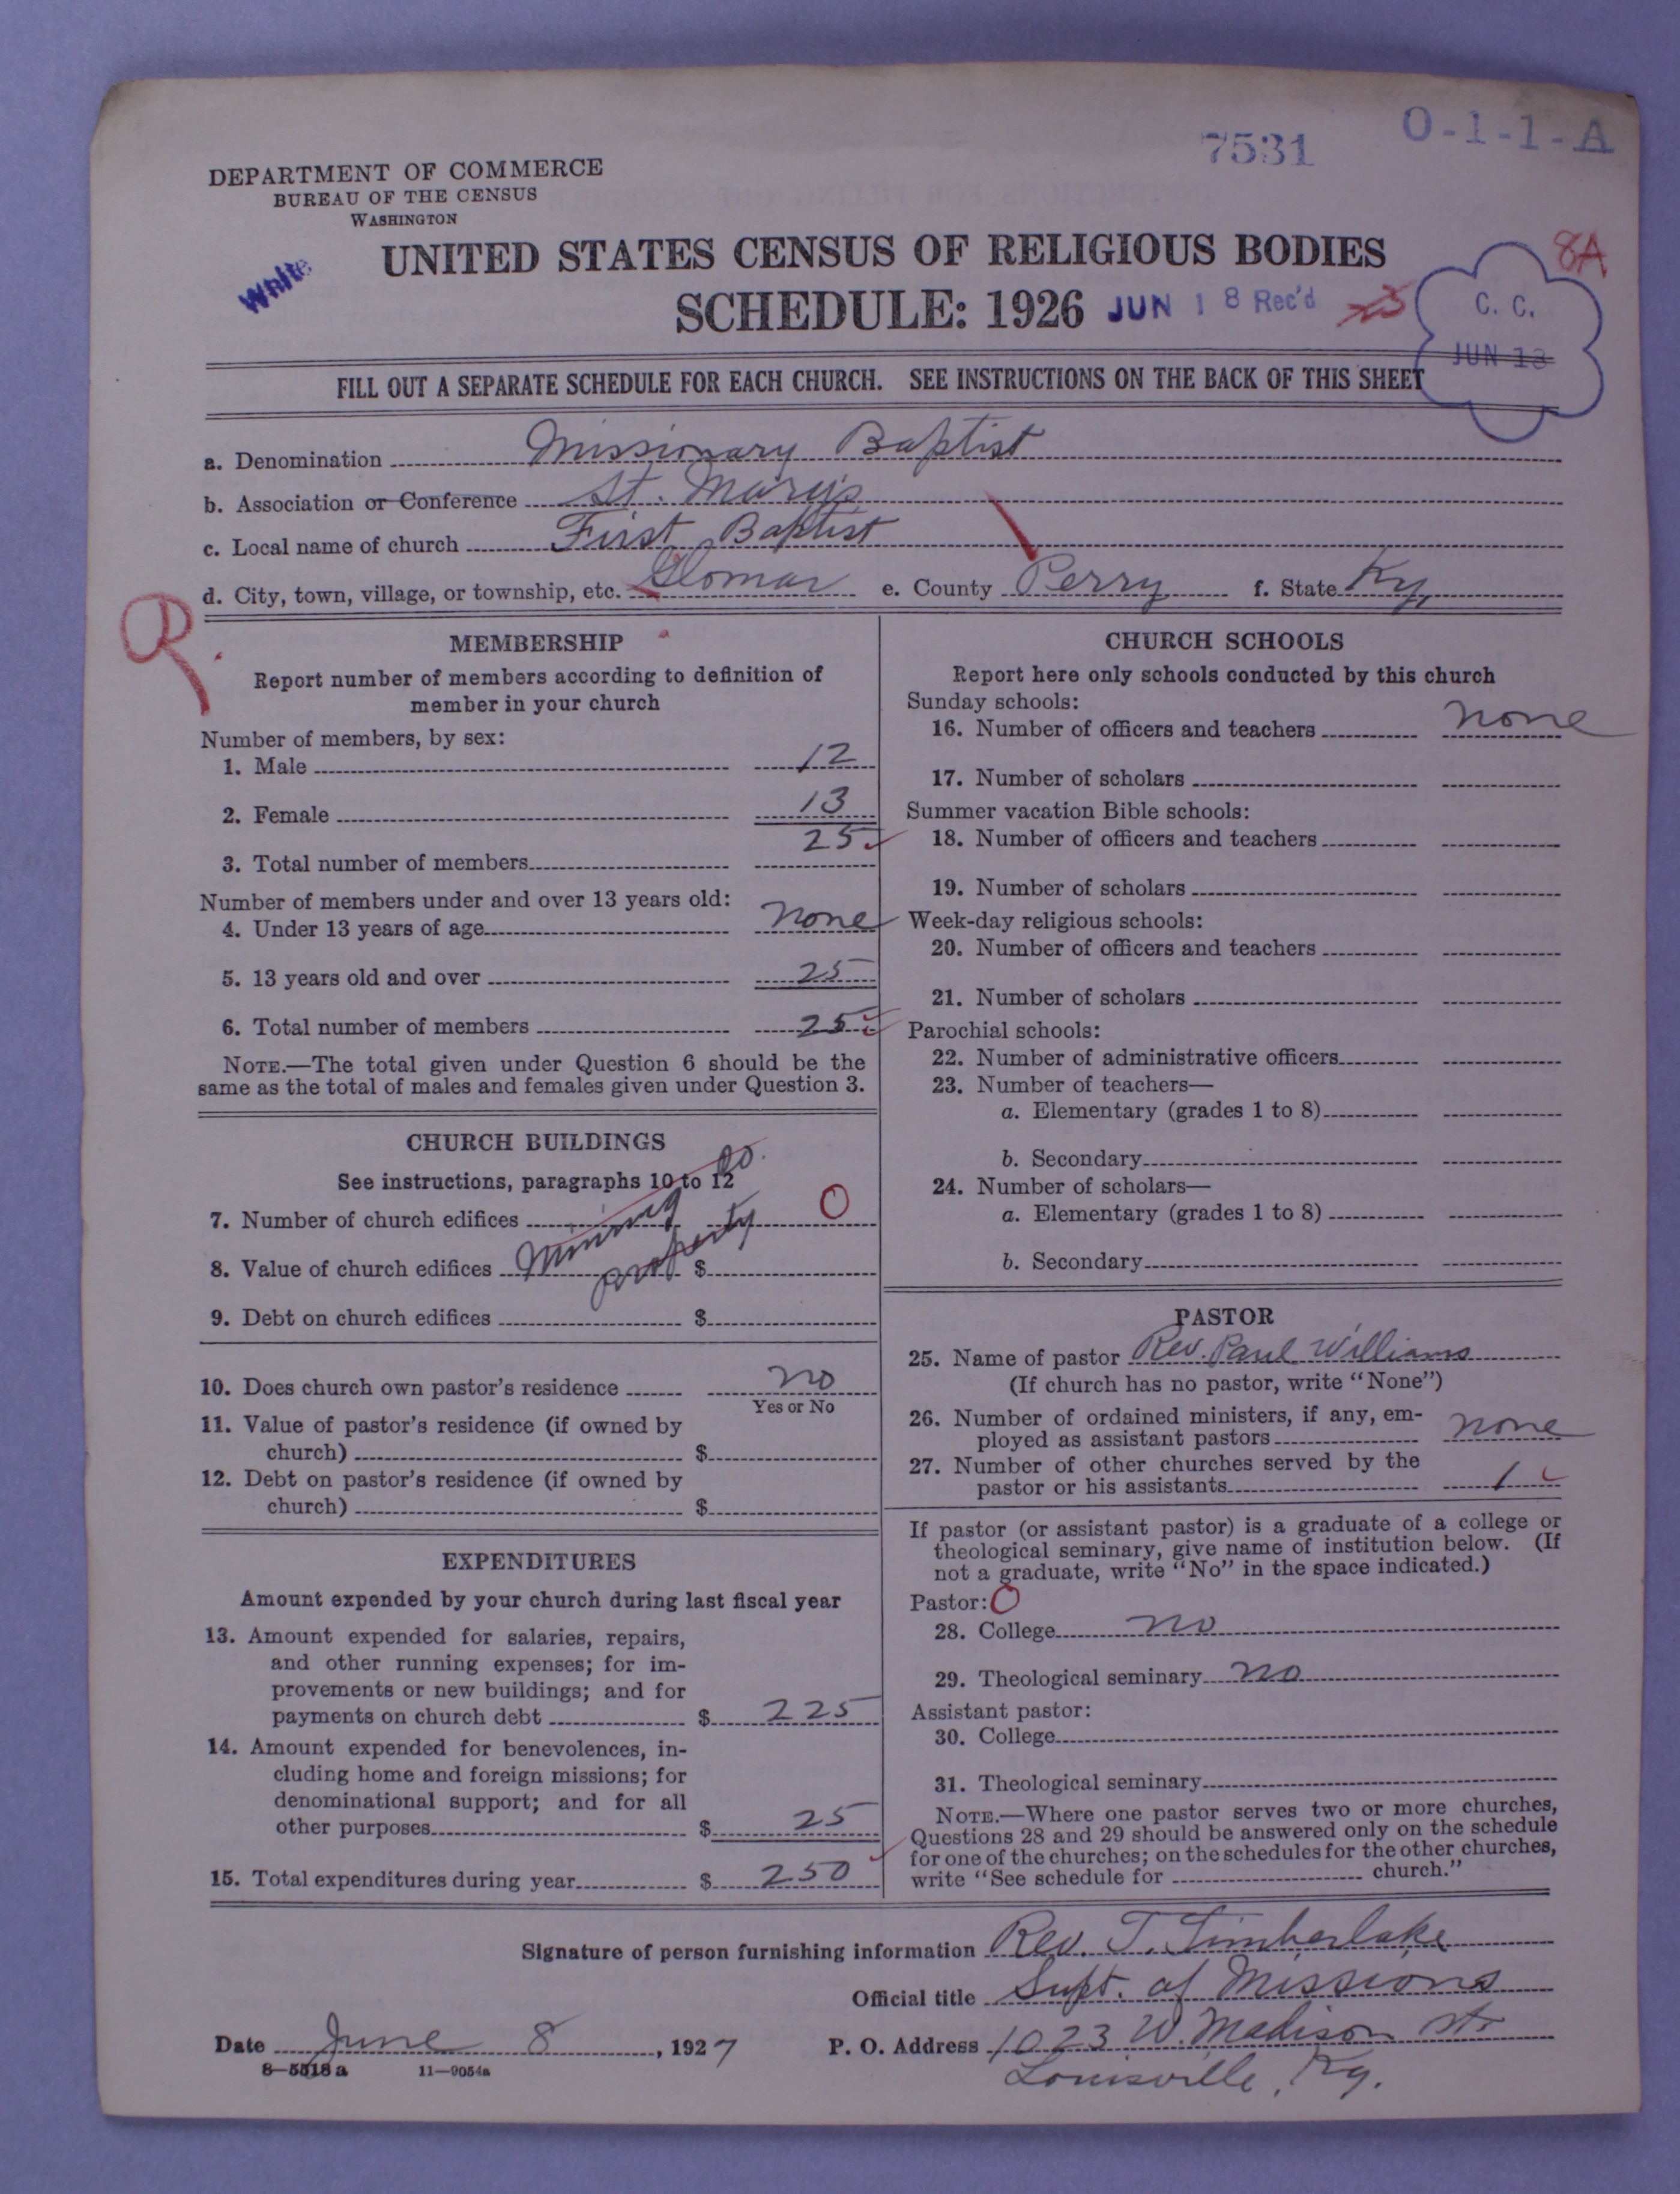 7531
O-1-1-A
DEPARTMENT OF COMMERCE
BUREAU OF THE CENSUS
WASHINGTON
White
UNITED STATES CENSUS OF RELIGIOUS BODIES
8A
SCHEDULE: 1926
JUN 18 Rec'd
C. C.
JUN 13
FILL OUT A SEPARATE SCHEDULE FOR EACH CHURCH. SEE INSTRUCTIONS ON THE BACK OF THIS SHEET
a. Denomination Missionary Baptist
b. Association or Conference St. Mary's
c. Local name of church First Baptist
d. City, town, village, or township, etc. Glomar e. County Perry f. State Ky.
R.
MEMBERSHIP
Report number of members according to definition of
member in your church
Number of members, by sex:
1. Male 12
2. Female 13
3. Total number of members 25
Number of members under and over 13 years old:
4. Under 13 years of age none
5. 13 years old and over 25
6. Total number of members 25
NOTE.—The total given under Question 6 should be the
same as the total of males and females given under Question 3.
CHURCH BUILDINGS
See instructions, paragraphs 10 to 12
7. Number of church edifices 0
Mining Co.
property
8. Value of church edifices $
9. Debt on church edifices $
10. Does church own pastor's residence no
Yes or No
11. Value of pastor's residence (if owned by
church) $
12. Debt on pastor's residence (if owned by
church) $
EXPENDITURES
Amount expended by your church during last fiscal year
13. Amount expended for salaries, repairs,
and other running expenses; for im-
provements or new buildings; and for
payments on church debt $ 225
14. Amount expended for benevolences, in-
cluding home and foreign missions; for
denominational support; and for all
other purposes $ 25
15. Total expenditures during year $ 250
CHURCH SCHOOLS
Report here only schools conducted by this church
Sunday schools:
16. Number of officers and teachers none
17. Number of scholars
Summer vacation Bible schools:
18. Number of officers and teachers
19. Number of scholars
Week-day religious schools:
20. Number of officers and teachers
21. Number of scholars
Parochial schools:
22. Number of administrative officers
23. Number of teachers—
a. Elementary (grades 1 to 8)
b. Secondary
24. Number of scholars—
a. Elementary (grades 1 to 8)
b. Secondary
PASTOR
25. Name of pastor Rev. Paul Williams
(If church has no pastor, write "None")
26. Number of ordained ministers, if any, em-
ployed as assistant pastors none
27. Number of other churches served by the
pastor or his assistants 1
If pastor (or assistant pastor) is a graduate of a college or
theological seminary, give name of institution below. (If
not a graduate, write "No" in the space indicated.)
Pastor: O
28. College no
29. Theological seminary no
Assistant pastor:
30. College
31. Theological seminary
NOTE.—Where one pastor serves two or more churches,
Questions 28 and 29 should be answered only on the schedule
for one of the churches; on the schedules for the other churches,
write "See schedule for church."
Signature of person furnishing information Rev. T. Timberlake
Official title Supt. of Missions
Date June 8, 1927 P. O. Address 1023 W. Madison St.
Louisville, Ky.
8—5518 a 11—9054a